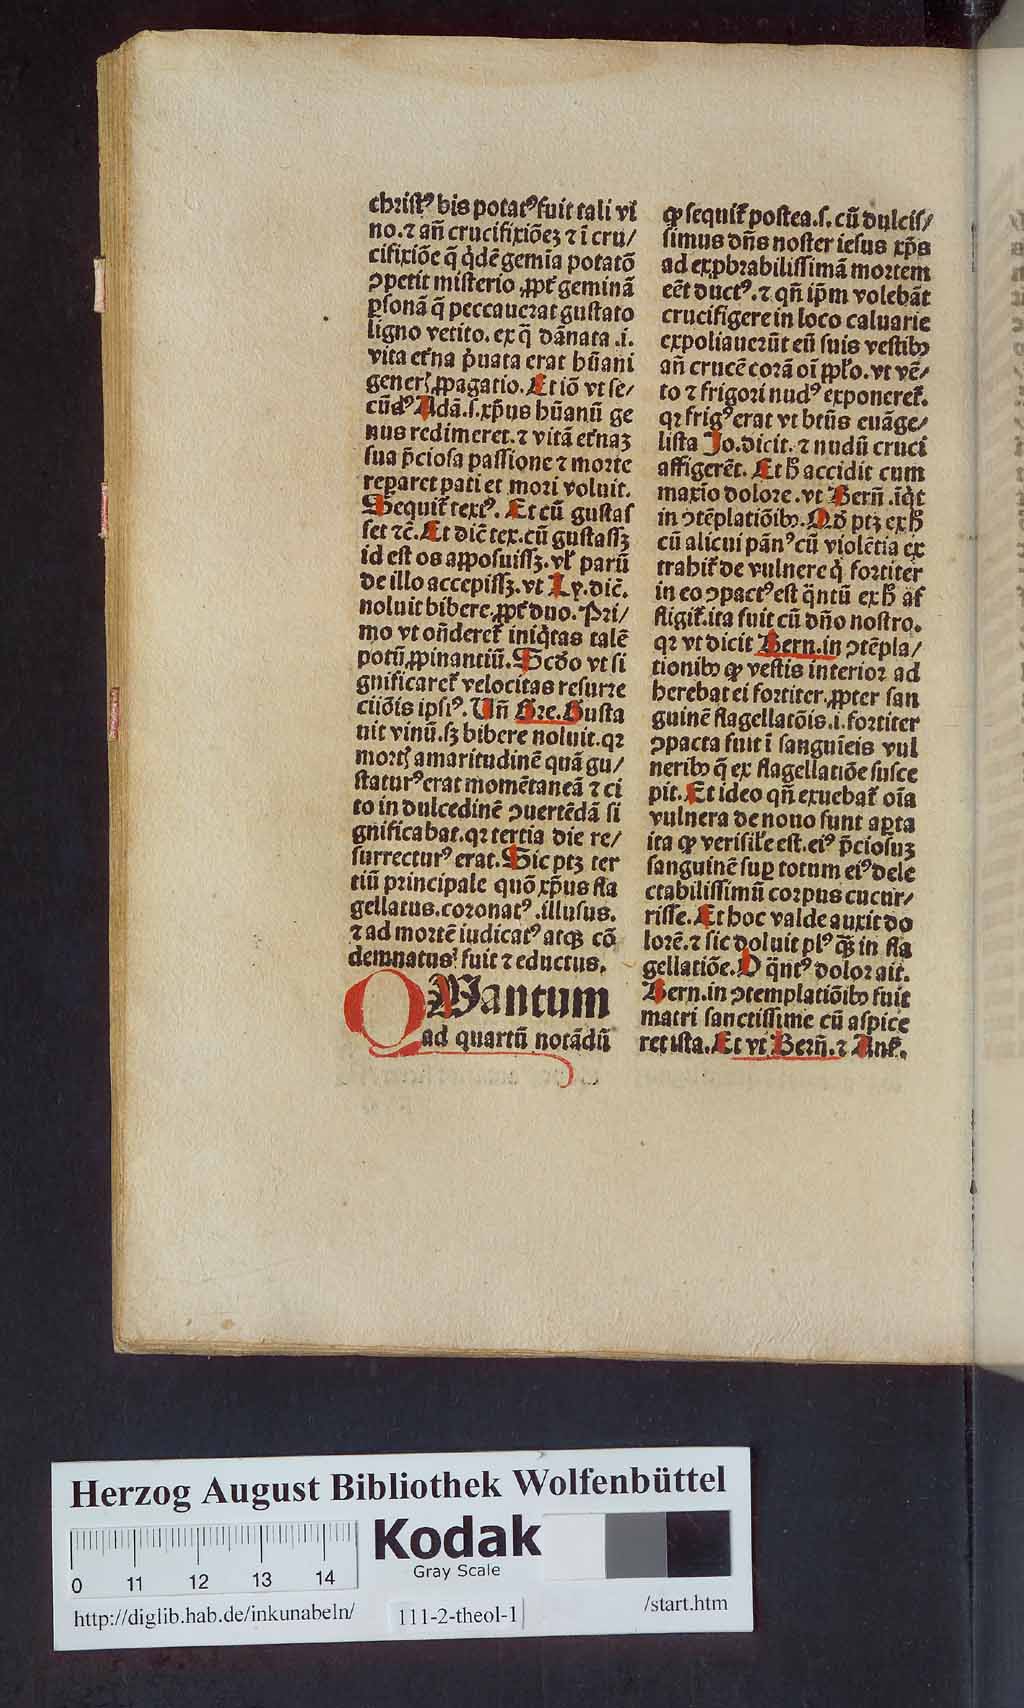 christꝰ bis potatꝰ fuit tali vi
no. ⁊ an̄ crucifixiōeꝫ ⁊ ī cru/
cifixiōe q̄ q̇dē gemīa potatō
ↄpetit misterio ꝓpt̄ geminā
ꝑsonā q̄ peccauerat gustato
ligno vetito. ex q̄ dānata .i.
vita et̄na p̄uata erat hūani
generꝭ ꝓpagatio. Et iō vt se/
cūdꝰ Adā .s. xp̄us hūanū ge
nus redimeret. ⁊ vitā et̄naꝫ
sua p̄ciosa passione ⁊ morte
repararet pati et mori voluit.
Sequit̄ textꝰ. Et cū gustas
set ⁊c̄. Et diē tex. cū gustassꝫ
id est os apposuissꝫ. vl̄ parū
de illo accepissꝫ. vt Ly. diē.
noluit bibere ꝓpt̄ duo. Pri/
mo vt on̄deret̄ iniq̇tas talē
potū ꝓpinantiū. Scd̄o vt si
gnificaret̄ velocitas resurre
ctiōis ipsiꝰ. Un̄ Gre. Gusta
uit vinū. sꝫ bibere noluit. qꝛ
mortꝭ amaritudinē quā gu/
staturꝰ erat momētaneā ⁊ ci
to in dulcedinē ↄuertēdā si
gnificabat. qꝛ tertia die re/
surrecturꝰ erat. Sic ptꝫ ter
tiū principale quō xp̄us fla
gellatus. coronatꝰ. illusus.
⁊ ad mortē iudicatꝰ atqꝫ cō
demnatusꝰ fuit ⁊ eductus.
QWantum
ad quartū notādū
ꝙ sequit̄ postea .s. cū dulcis/
simus dn̄s noster iesus xp̄s
ad exꝓbrabilissimā mortem
eēt ductꝰ. ⁊ qn̄ ip̄m volebāt
crucifigere in loco caluarie
expoliauerūt eū suis vestibꝫ
an̄ crucē corā oī ppl̄o. vt vē/
to ⁊ frigori nudꝰ exponeret̄.
qꝛ frigꝰ erat vt btūs euāge/
lista Jo. dicit. ⁊ nudū cruci
affigerēt. Et h̄ accidit cum
maxīo dolore. vt Bern̄. īq̇t
in ↄtēplatiōibꝫ. Qd̄ ptꝫ ex h̄
cū alicui pānꝰ cū violētia ex
trahit̄ de vulnere q̇ fortiter
in eo ↄpactꝰ est q̈ntū ex h̄ af
fligit̄. ita fuit cū dn̄o nostro.
qꝛ vt dicit Bern. in ↄtēpla/
tionibꝫ ꝙ vestis interior ad
herebat ei fortiter ꝓpter san
guinē flagellatōis .i. fortiter
ↄpacta fuit ī sanguīeis vul
neribꝫ q̄ ex flagellatiōe susce
pit. Et ideo qn̄ exuebat̄ oīa
vulnera de nouo sunt aꝑta
ita ꝙ verisil̄e est. eiꝰ p̄ciosuꝫ
sanguinē suꝑ totum eiꝰ dele
ctabilissimū corpus cucur/
risse. Et hoc valde auxit do
lorē. ⁊ sic doluit plꝰ q̄ꝫ in fla
gellatiōe. O q̈ntꝰ dolor ait.
Bern. in ↄtemplatiōibꝫ fuit
matri sanctissime cū aspice
ret ista. Et vt Bern̄. ⁊ Ans̄.
Herzog August Bibliothek Wolfenbüttel
Kodak
Gray Scale
0 11 12 13 14
http://diglib.hab.de/inkunabeln/
111-2-theol-1
/start.htm